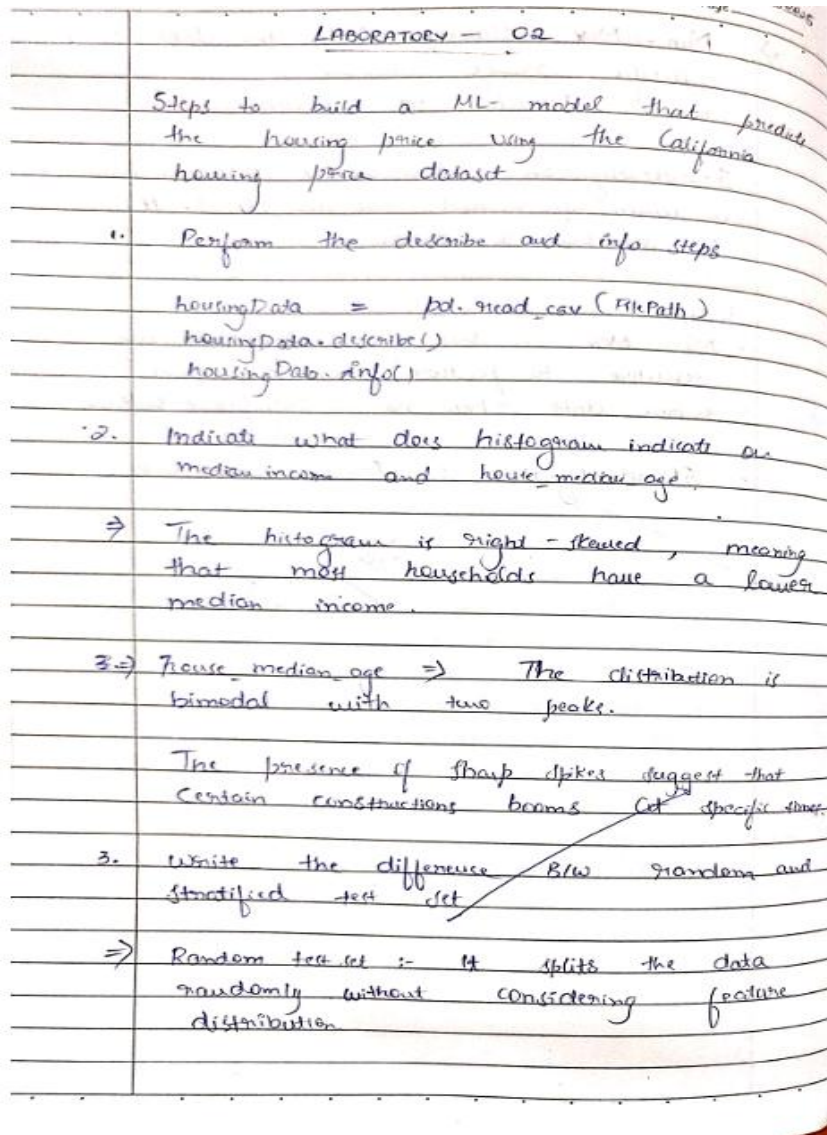 LABORATORY - 02
Steps to build a ML- model that predicts
the housing price using the California
housing price dataset
1. Perform the describe and info steps
housingData = pd.read_csv (FilePath)
housingData.describe()
housingData.info()
2. Indicate what does histogram indicate on
median income and house_median age.
⇒ The histogram is right-skewed, meaning
that most households have a lower
median income.
3⇒ house_median_age ⇒ The distribution is
bimodal with two peaks.
The presence of sharp spikes suggest that
Certain constructions booms at specific times.
3. Write the difference B/W random and
stratified test set
⇒ Random test set :- It splits the data
randomly without considering feature
distribution